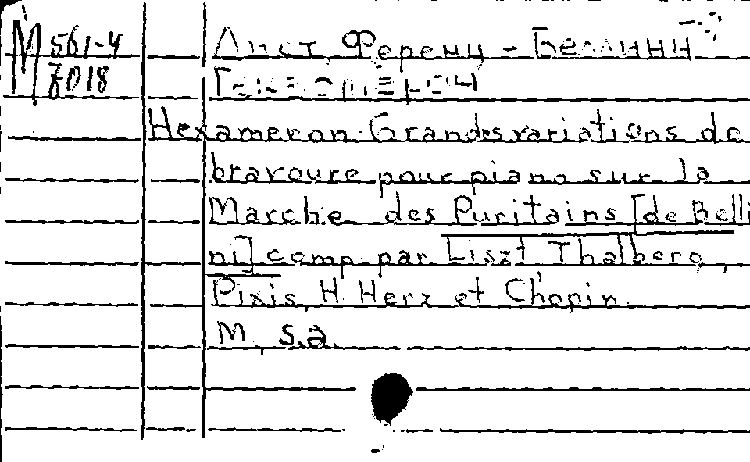 М 561-4
7018
Лист, Ференц - Беллини
Гексамерон
Hexameron. Grandes variations de
bravoure pour piano sur la
Marche des Puritains [de Belli
ni] comp. par Liszt Thalberg,
Pixis, H. Herz et Chopin.
M., s.a.